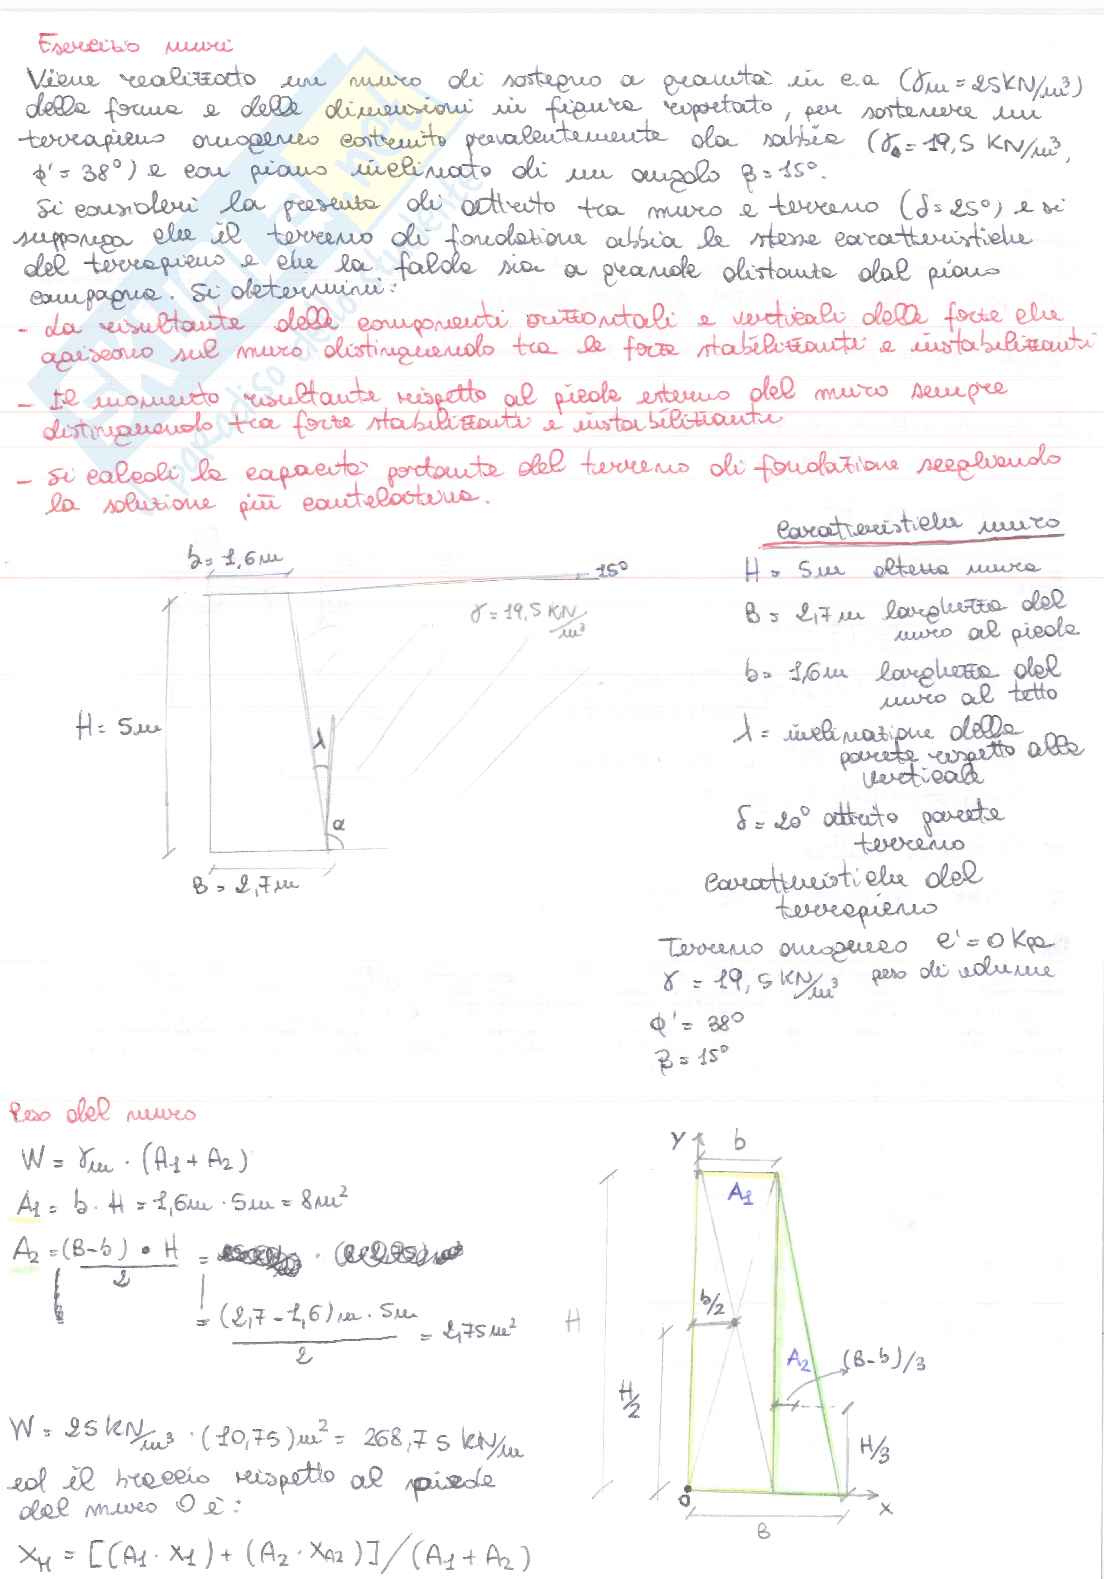 Esercizio muri
Viene realizzato un muro di sostegno a gravità in c.a (γm = 25 KN/m³)
della forma e delle dimensioni in figura riportato, per sostenere un
terrapieno omogeneo costituito prevalentemente da sabbia (γ = 19,5 KN/m³,
φ' = 38°) e con piano inclinato di un angolo β = 15°.
Si consideri la presenza di attrito tra muro e terreno (δ = 25°) e si
supponga che il terreno di fondazione abbia le stesse caratteristiche
del terrapieno e che la falda sia a grande distanza dal piano
campagna. Si determini:
- La risultante delle componenti orizzontali e verticali delle forze che
agiscono sul muro distinguendo tra le forze stabilizzanti e instabilizzanti
- Il momento risultante rispetto al piede esterno del muro sempre
distinguendo tra forze stabilizzanti e instabilizzanti
- Si calcoli la capacità portante del terreno di fondazione scegliendo
la soluzione più cautelativa.
b = 1,6 m
15°
γ = 19,5 KN/m³
H = 5m
λ
α
B = 2,7 m
Caratteristiche muro
H = 5m altezza muro
B = 2,7 m larghezza del
muro al piede
b = 1,6m larghezza del
muro al tetto
λ = inclinazione della
parete rispetto alla
verticale
δ = 20° attrito parete
terreno
Caratteristiche del
terrapieno
Terreno omogeneo c' = 0 Kpa
γ = 19,5 KN/m³ peso di volume
φ' = 38°
β = 15°
Peso del muro
W = γm · (A1 + A2)
A1 = b · H = 1,6m · 5m = 8m²
A2 = (B-b) · H / 2 =
= (2,7 - 1,6) m · 5m / 2 = 2,75m²
W = 25 KN/m³ · (10,75) m² = 268,75 KN/m
ed il braccio rispetto al piede
del muro O è:
XM = [(A1 · X1) + (A2 · XA2)] / (A1 + A2)
Y
b
A1
b/2
H
A2
(B-b)/3
H/2
H/3
O
X
B
SKUOLA.net
il paradiso dello studente